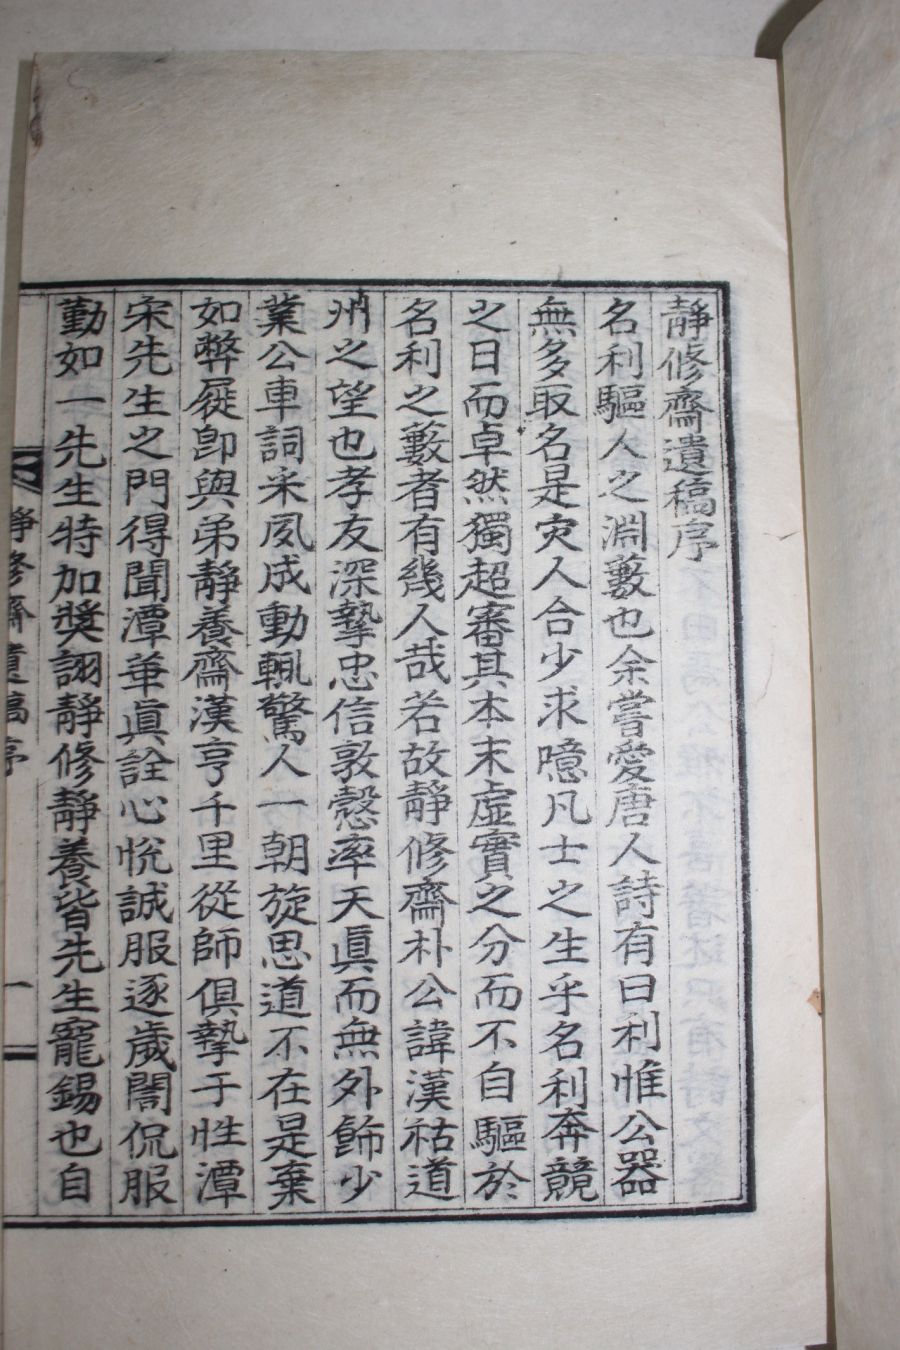 靜修齋遺稿序
名利驅人之淵藪也余嘗愛唐人詩有曰利惟公器
無多取名是灾人合少求噫凡士之生乎名利奔競
之日而卓然獨超審其本末虛實之分而不自驅於
名利之藪者有幾人哉若故靜修齋朴公諱漢祜道
州之望也孝友深摯忠信敦慤率天眞而無外飾少
業公車詞采夙成動輒驚人一朝旋思道不在是棄
如弊屣卽與弟靜養齋漢亨千里從師俱摯于性潭
宋先生之門得聞潭華眞詮心悅誠服逐歲誾侃服
勤如一先生特加奬詡靜修靜養皆先生寵錫也自
靜修齋遺稿序
一